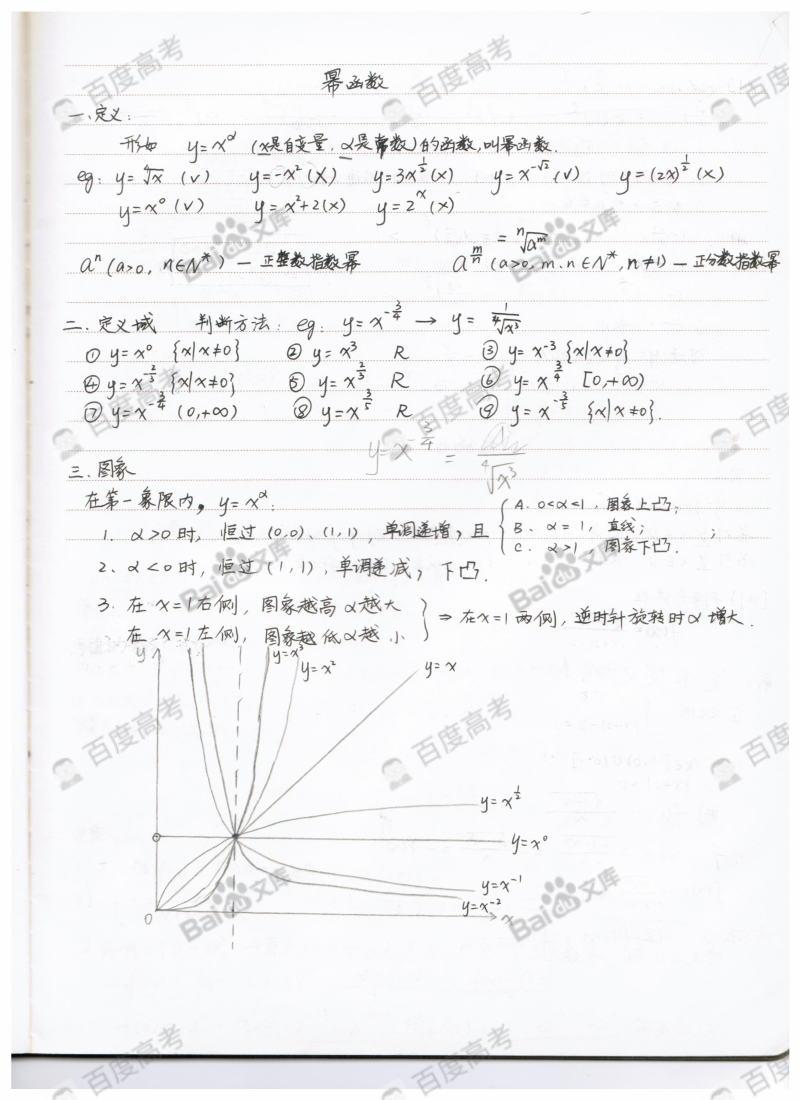 幂函数
一、定义：
形如 y=x^α (x是自变量，α是常数)的函数，叫幂函数.
eg: y=⁴√x (√) y=-x² (×) y=3x^(1/2) (×) y=x^(-√2) (√) y=(2x)^(1/2) (×)
y=x⁰ (√) y=x²+2 (×) y=2^x (×)
aⁿ (a>0, n∈N*) — 正整数指数幂 a^(m/n) = ⁿ√a^m (a>0, m.n∈N*, n≠1) — 正分数指数幂
二、定义域 判断方法: eg: y=x^(-3/4) → y= 1/⁴√x³
① y=x⁰ {x|x≠0} ② y=x³ R ③ y=x^(-3) {x|x≠0}
④ y=x^(-2/3) {x|x≠0} ⑤ y=x^(2/3) R ⑥ y=x^(3/4) [0,+∞)
⑦ y=x^(-3/4) (0,+∞) ⑧ y=x^(3/5) R ⑨ y=x^(-3/5) {x|x≠0}.
y=x^(-3/4) = ⁴√x³
三、图象
在第一象限内, y=x^α:
1. α>0时, 恒过(0,0)、(1,1), 单调递增, 且 { A. 0<α<1, 图象上凸;
B. α=1, 直线;
C. α>1, 图象下凸. ;
2. α<0时, 恒过(1,1), 单调递减, 下凸.
3. 在x=1右侧, 图象越高α越大
在x=1左侧, 图象越低α越小 } ⇒ 在x=1两侧, 逆时针旋转时α增大.
y y=x³ y=x² y=x
y=x^(1/2)
y=x⁰
y=x^(-1)
y=x^(-2)
0 x
百度高考
Bai文库